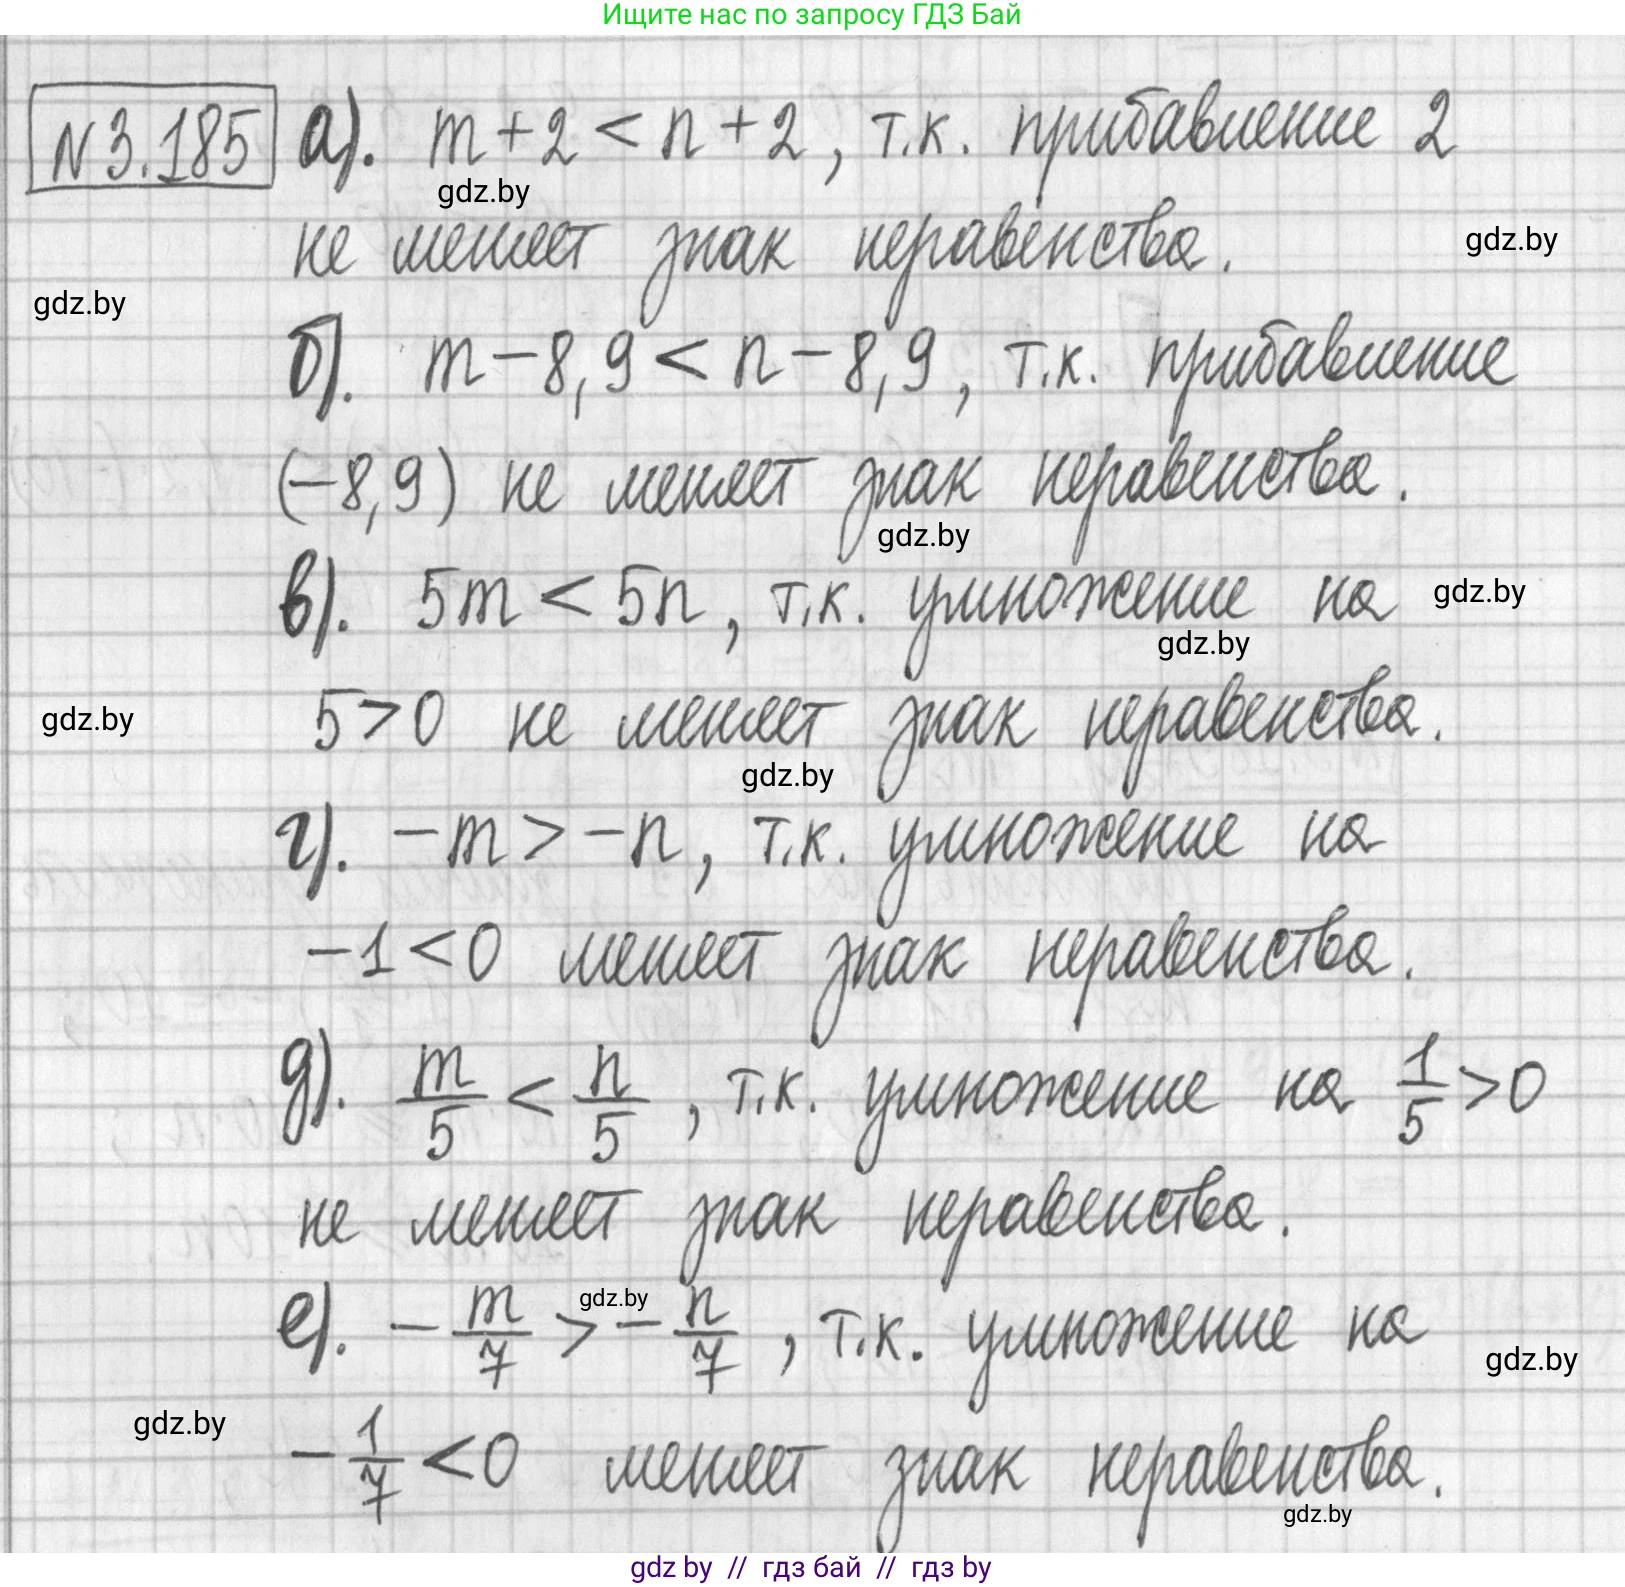 Ищите нас по запросу ГДЗ Бай
N 3.185 а). m+2 < n+2, т.к. прибавление 2
gdz.by
не меняет знак неравенства.
gdz.by
gdz.by
б). m-8,9 < n-8,9, т.к. прибавление
(-8,9) не меняет знак неравенства.
gdz.by
в). 5m < 5n, т.к. умножение на
gdz.by
gdz.by
5>0 не меняет знак неравенства.
gdz.by
gdz.by
г). -m > -n, т.к. умножение на
-1<0 меняет знак неравенства.
д). m/5 < n/5, т.к. умножение на 1/5 >0
не меняет знак неравенства.
е). -m/7 > -n/7, т.к. умножение на
gdz.by
gdz.by
gdz.by
-1/7 <0 меняет знак неравенства.
gdz.by
gdz.by // гдз бай // гдз by